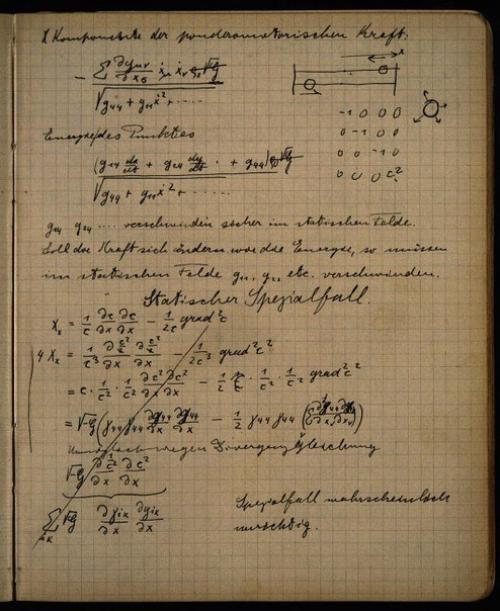 X Komponente der ponderomotorischen Kraft.
- Σ ∂gμν/∂xσ ẋμ ẋν √G / √(g44 + g11 ẋ² + ....)
Energie des Punktes
-1 0 0 0
0 -1 0 0
0 0 -1 0
0 0 0 c²
(g14 dx/dt + g24 dy/dt · + g44) √G / √(g44 + g11 ẋ² + ....)
g14 g24 .... verschwinden sicher im statischen Felde.
Soll die Kraft sich ändern wie die Energie, so müssen
im statischen Felde g11, g22 etc. verschwinden.
Statischer Spezialfall.
Xx = 1/c ∂c/∂x ∂c/∂x - 1/2c grad²c
4 Xx = 1/c³ ∂c²/∂x ∂c²/∂x - 1/2c³ grad²c²
= c · 1/c² · 1/c² ∂c²/∂x ∂c²/∂x - 1/2 c · 1/c² · 1/c² grad²c²
= √G (γ44 γ44 ∂g44/∂x ∂g44/∂x - 1/2 γ44 γ44
wegen Divergenzgleichung
√G ∂c²/∂x ∂c²/∂x
Σ √G ∂γik/∂x ∂gik/∂x
Spezialfall wahrscheinlich
unrichtig.